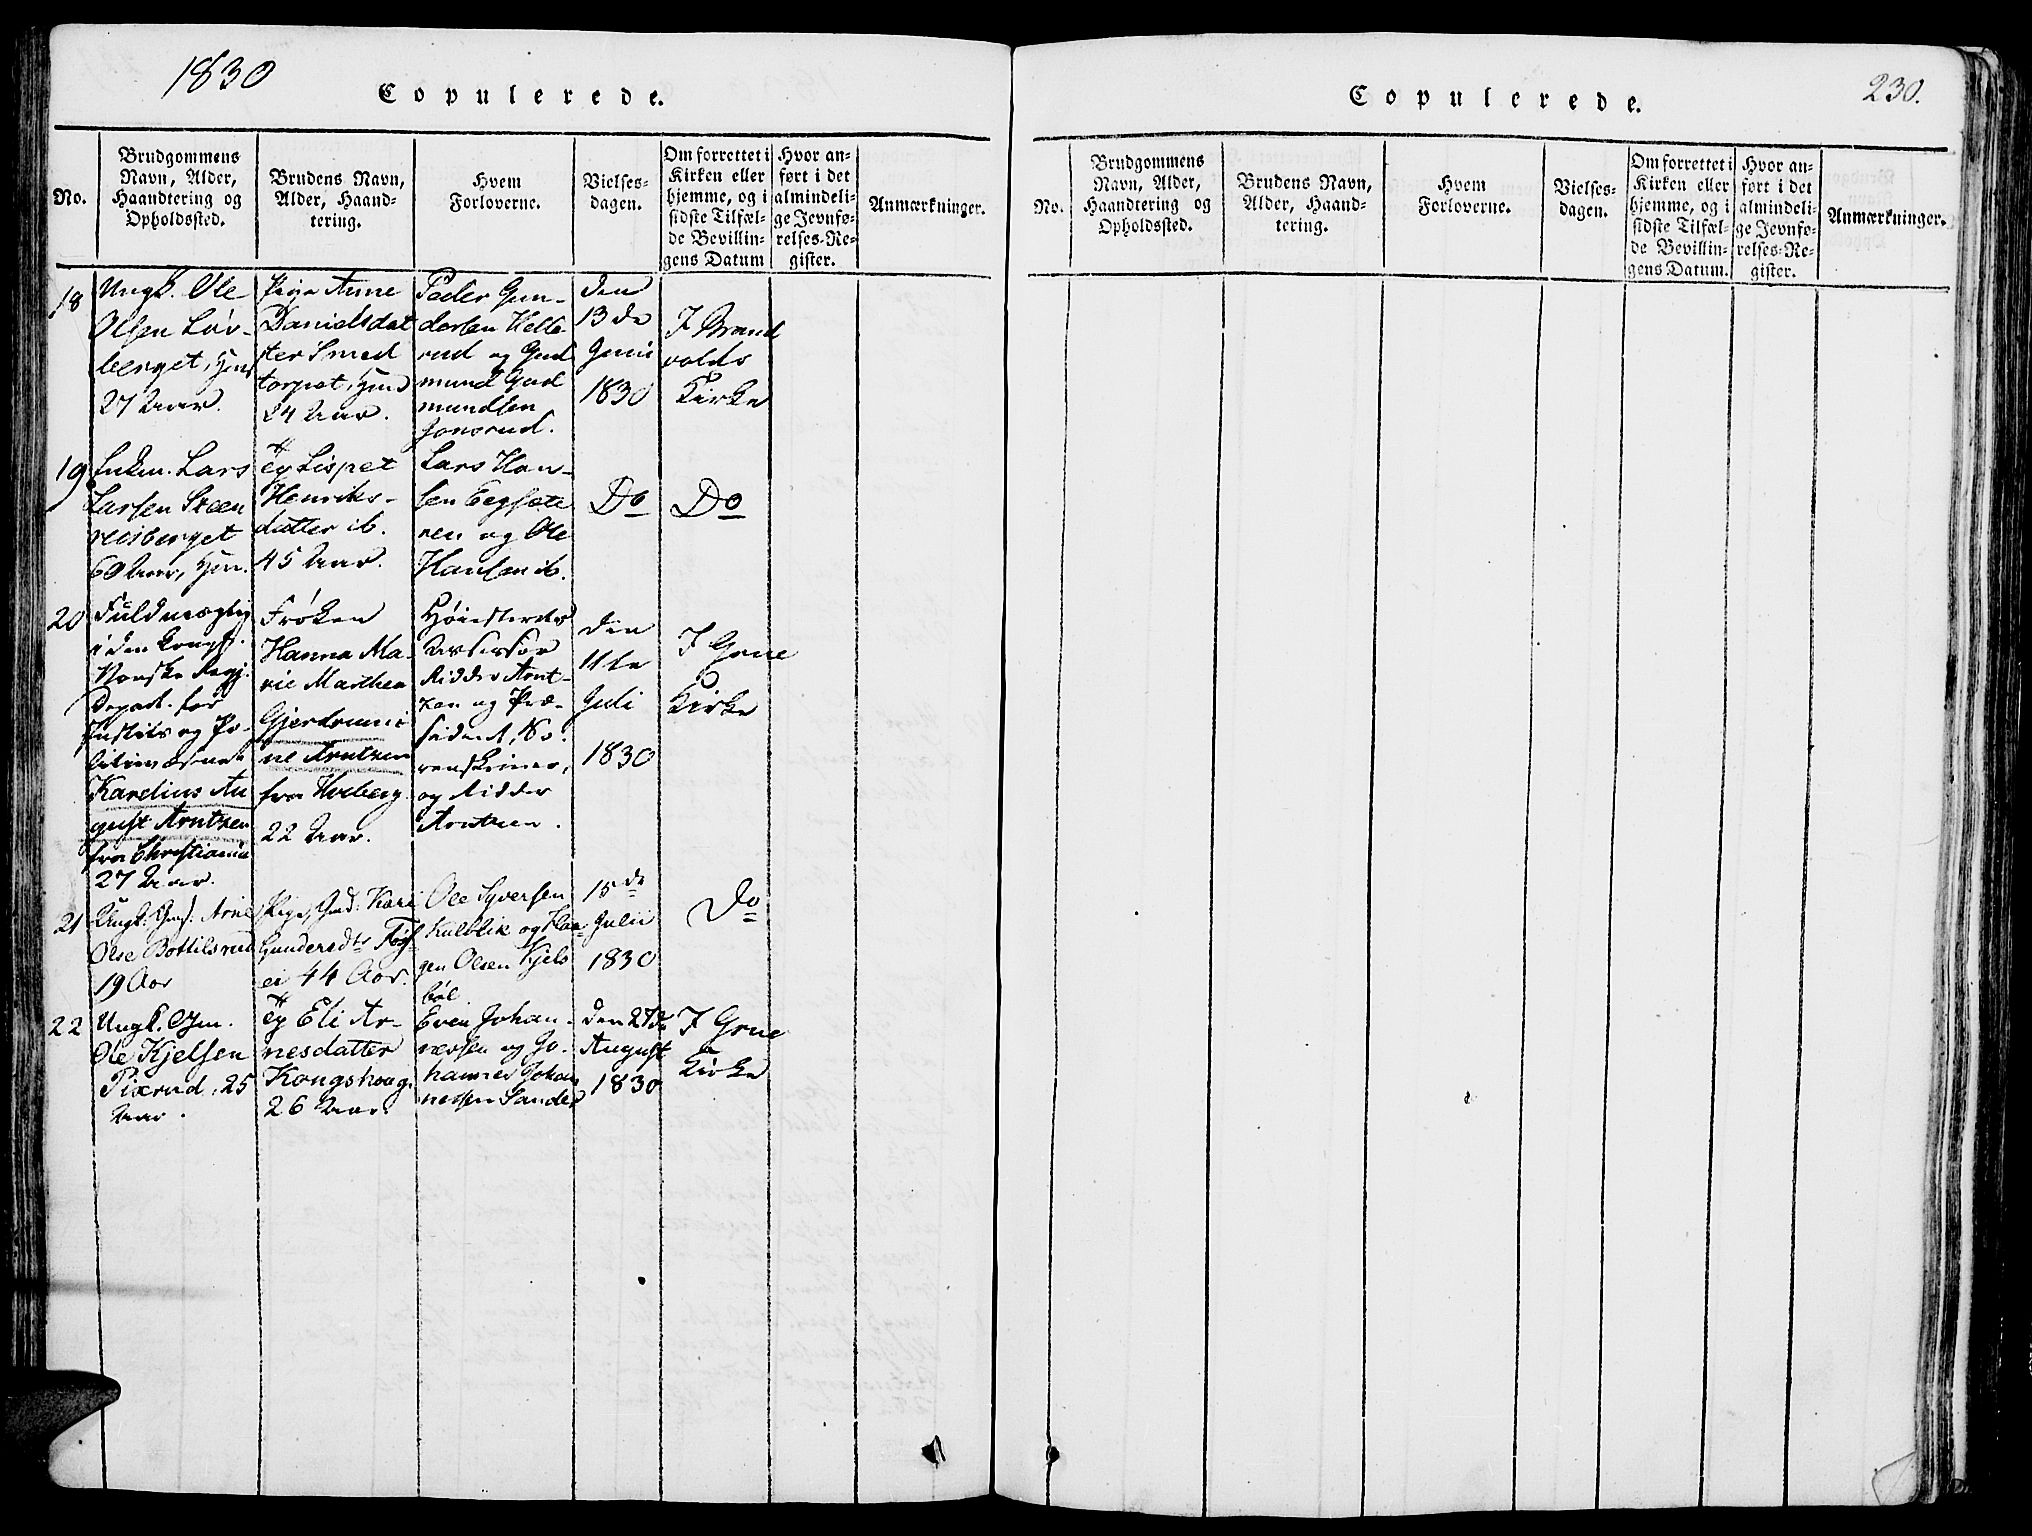 1830
Copulerede.
No.
Brudgommens
Navn, Alder,
Haandtering og
Opholdssted.
Brudens Navn,
Alder, Haand-
tering.
Hvem
Forloverne.
Vielses-
dagen.
Om forrettet i
Kirken eller
hjemme, og i
sidste Tilfæl-
de Bevillin-
gens Datum
Hvor an-
ført i det
almindeli-
ge Jevnfø-
relses-Re-
gister.
Anmærkninger.
18
Ungk. Ole
Olsen Løv-
berget,
27 Aar.
Pige Anne
Danielsdat
ter Smed
torpet,
24 Aar.
Peder Gun-
dersen Helle-
rud og Gud
mund Gud
mundsen
Jonsrud.
den
13de
Junii
1830
I Brand
volds
Kirke
19
Enkem. Lars
Larsen Steen
reisberget
60 Aar,
Lispet
Henriks-
datter ib.
45 Aar.
Lars Han-
sen Eegsæte
ren og Ole
Hansen ib.
Do
Do
20
Fuldmægtig
i den kongl.
Norske Regj.
Depart. for
Justits og Po-
litievæsenet
Karelius Au
gust Arntzen
fra Christiania
27 Aar.
Frøken
Hanna Ma-
rie Marthea
Gjerdrumi-
ne Arntzen
fra Hveberg.
22 Aar.
Høiesterets
Assessor
Ridder Arnt-
zen og Præ-
sident,
og Ridder
Arntzen.
den
11te
Juli
1830
I Grue
Kirke
21
Ungk. Arne
Olse Bottilsrud
19 Aar
Pige, Kari
Gundersdtr
44 Aar.
Ole Syversen
Kulblik og Haa-
gen Olsen Kjels
bøl.
15de
Julii
1830
Do
22
Ungk.
Ole Kjelsen
Pixrud, 25
Aar.
Eli Ar-
nesdatter
Kongshoug.
26 Aar.
Even Johan-
nessen og Jo-
hannes Johan
nessen Sander
den 27de
August
1830
I Grue
Kirke
Copulerede.
230.
No.
Brudgommens
Navn, Alder,
Haandtering og
Opholdssted.
Brudens Navn,
Alder, Haand-
tering.
Hvem
Forloverne.
Vielses-
dagen.
Om forrettet i
Kirken eller
hjemme, og i
sidste Tilfæl-
de Bevillin-
gens Datum.
Hvor an-
ført i det
almindeli-
ge Jevnfø-
relses-Re-
gister.
Anmærkninger.